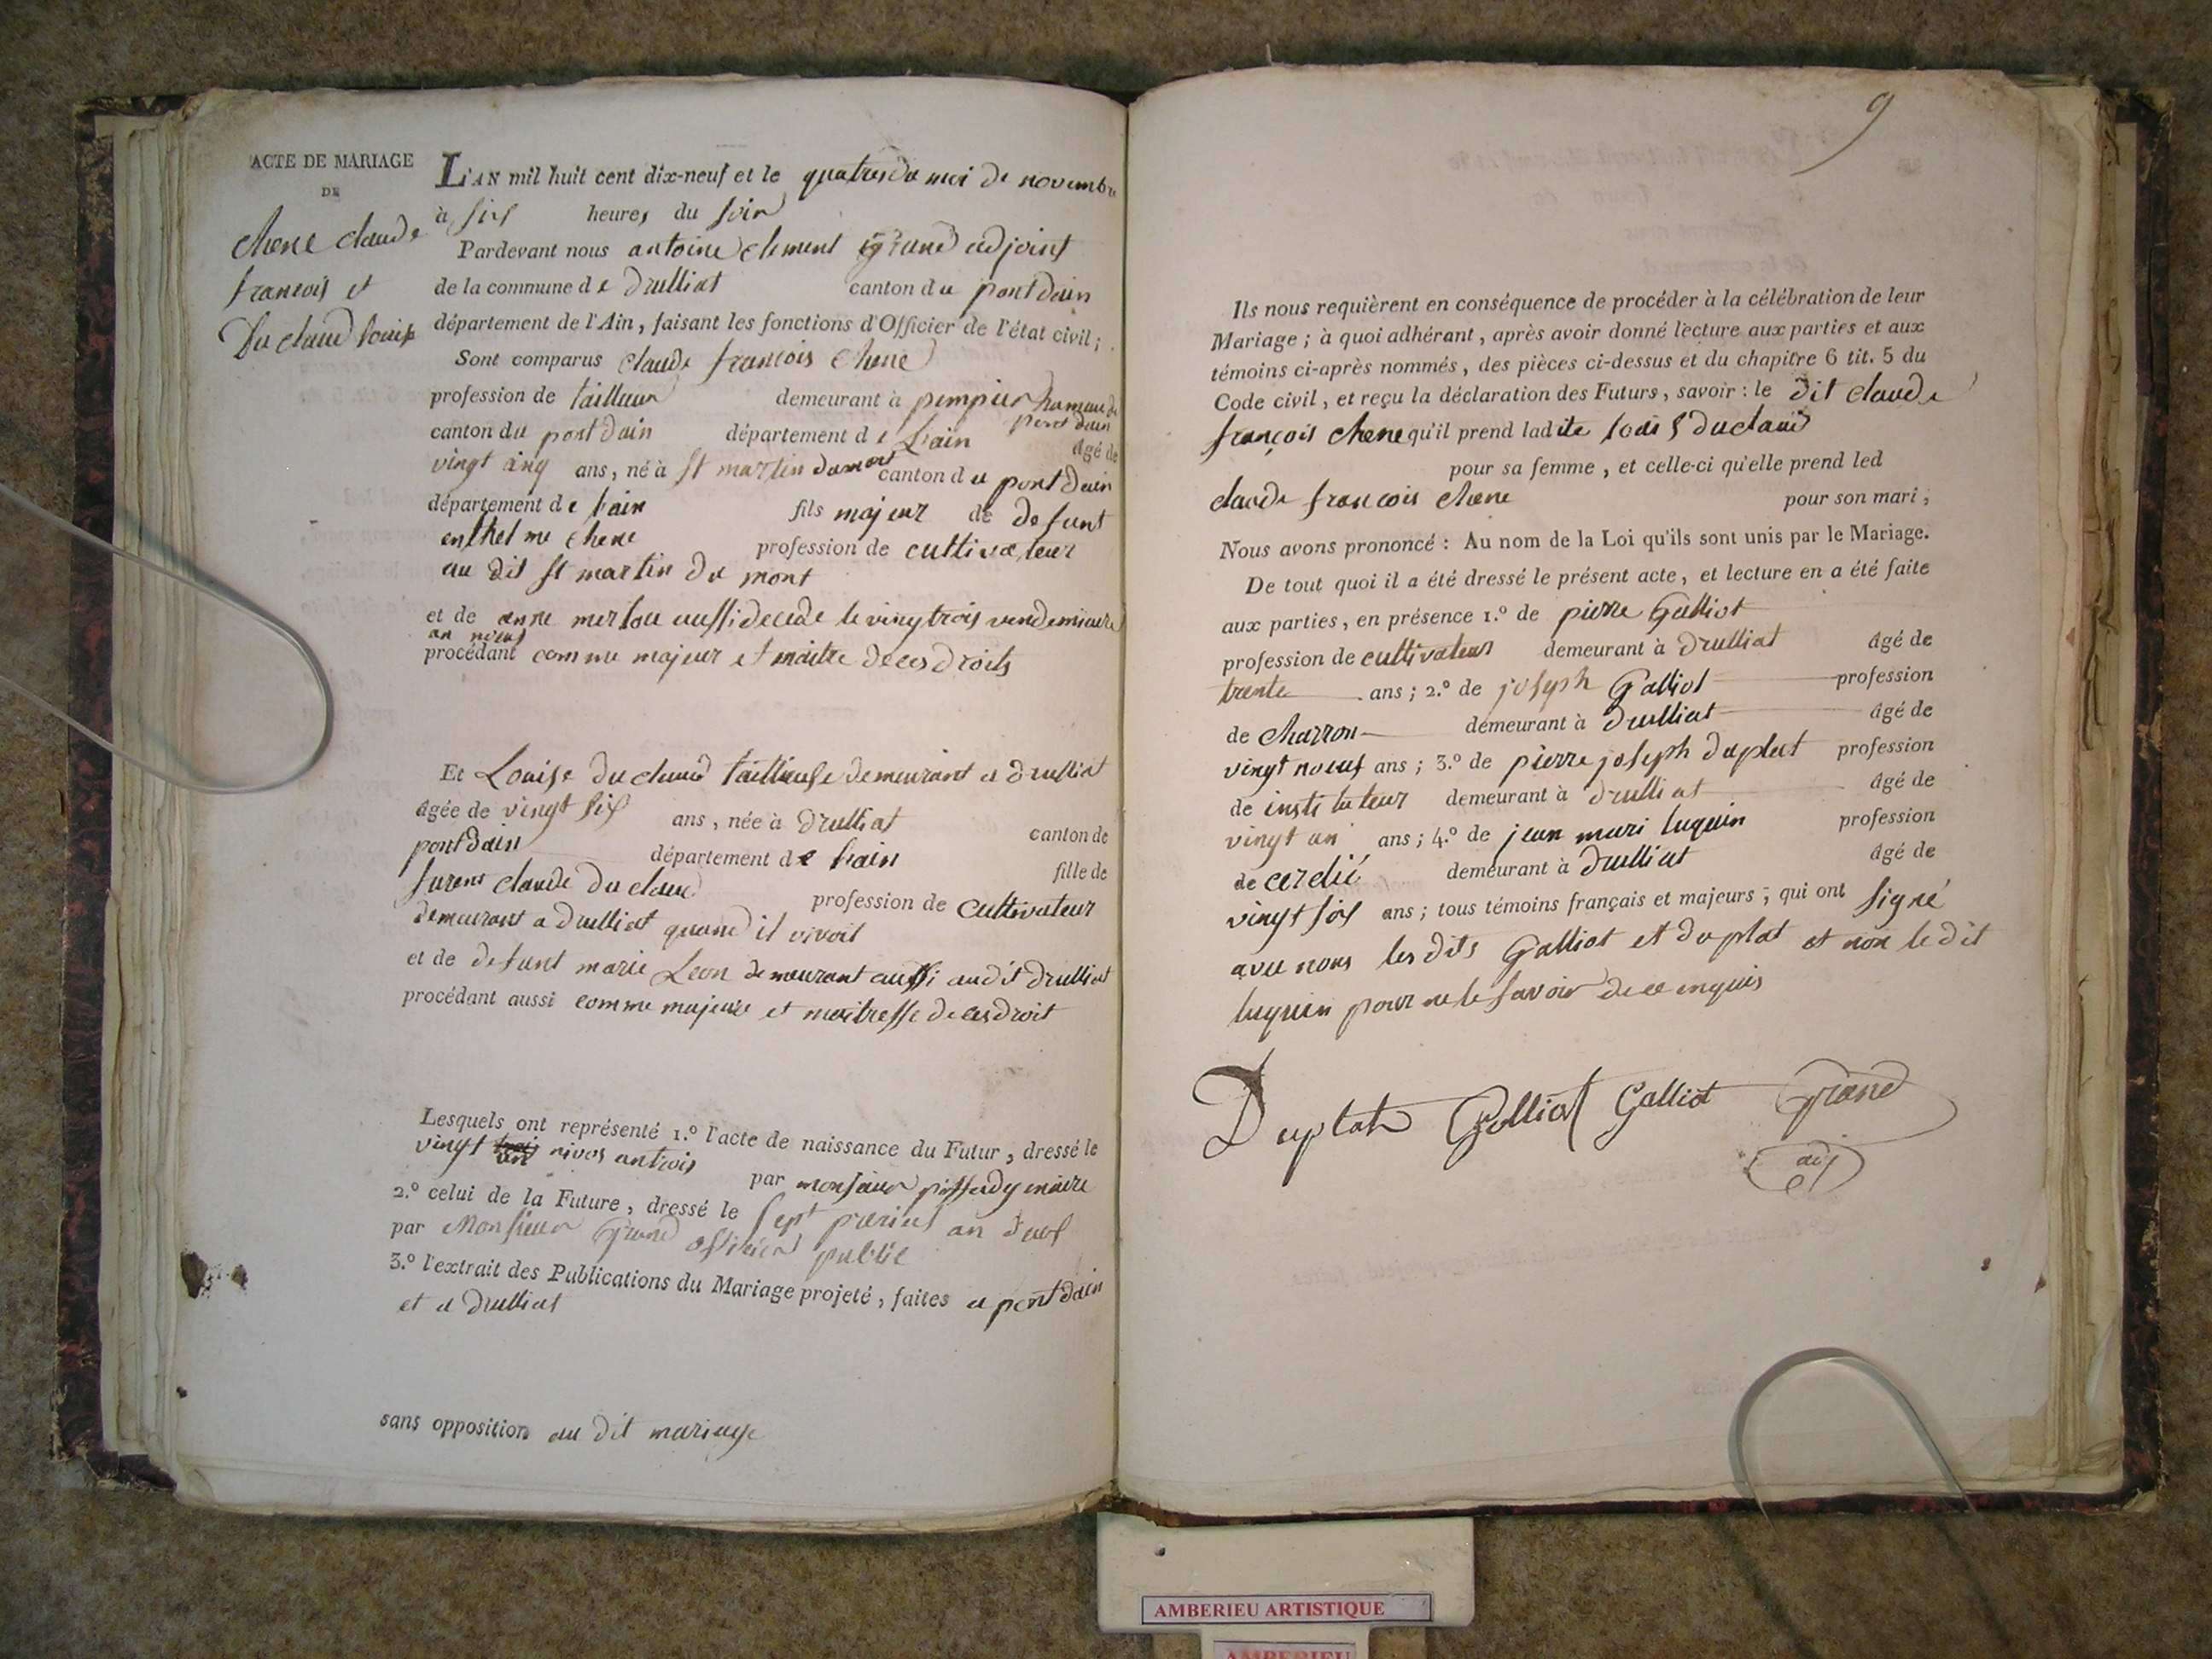 ACTE DE MARIAGE
DE
chene claude
francois et
Du claud louise
L'AN mil huit cent dix-neuf et le quatres du moi de novembre
à six heures du soir
Pardevant nous antoine clement grand adjoint
de la commune de drulliat canton du pont dain
département de l'Ain, faisant les fonctions d'Officier de l'état civil;
Sont comparus claude francois chene
profession de tailleur demeurant à pampier hameau de
pont dain
canton du pont dain département de lain âgé de
vingt cinq ans, né à st martin dumont canton du pont dain
département de lain fils majeur de defunt
enthelme chene profession de cultivateur
au dit st martin du mont
et de anne merlou aussi decede le vingtrois vendemiaire
an noeuf
procédant comme majeur et maitre de ces droits
Et Louise du claud taillieuse demeurant a drulliat
âgée de vingt six ans, née à drulliat canton de
pont dain département de lain fille de
furent claude du claud profession de cultivateur
demeurant a drulliat quand il vivoit
et de defunt marie Leon demeurant aussi audit drulliat
procédant aussi comme majeure et maitresse de ces droit
Lesquels ont représenté 1.º l'acte de naissance du Futur, dressé le
vingt un nivos antrois par monsieur maire
2.º celui de la Future, dressé le sept an deux
par Monsieur Grand officier public
3.º l'extrait des Publications du Mariage projeté, faites a pont dain
et a drulliat
sans opposition au dit mariage
9
Ils nous requièrent en conséquence de procéder à la célébration de leur
Mariage; à quoi adhérant, après avoir donné lecture aux parties et aux
témoins ci-après nommés, des pièces ci-dessus et du chapitre 6 tit. 5 du
Code civil, et reçu la déclaration des Futurs, savoir: le dit claude
françois chene qu'il prend ladite louis duclaud
pour sa femme, et celle-ci qu'elle prend led
claude francois chene pour son mari;
Nous avons prononcé: Au nom de la Loi qu'ils sont unis par le Mariage.
De tout quoi il a été dressé le présent acte, et lecture en a été faite
aux parties, en présence 1.º de pierre Galliot
profession de cultivateur demeurant à drulliat âgé de
trente ans; 2.º de joseph Galliot profession
de charron demeurant à drulliat âgé de
vingt noeuf ans; 3.º de pierre joseph duplat profession
de instituteur demeurant à drulliat âgé de
vingt un ans; 4.º de jean mari luquin profession
de cerclié demeurant à drulliat âgé de
vingt six ans; tous témoins français et majeurs; qui ont signé
avec nous les dits Galliot et duplat et non le dit
luquin pour ne le savoir de ce enquis
Duplat Golliot Galliot Grand
adj
AMBERIEU ARTISTIQUE
AMBERIEU